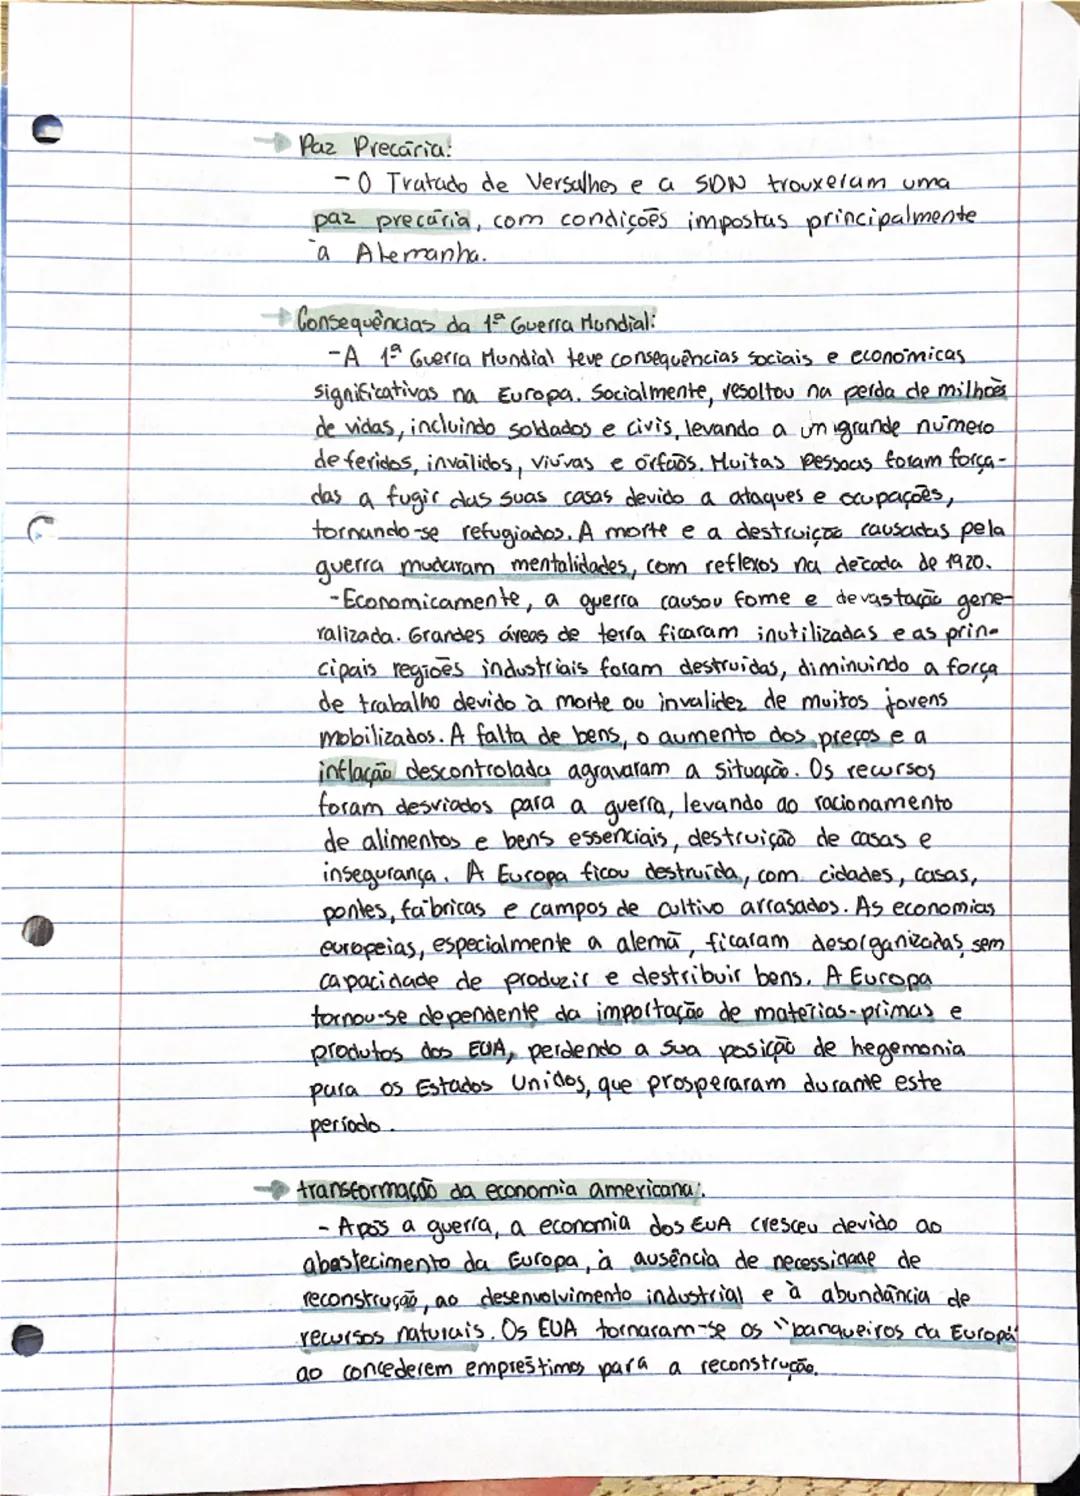 → Paz Precária:
- O Tratado de Versalhes e a SDN trouxeram uma
paz precária, com condições impostas principalmente
à Alemanha.
→ Consequências da 1ª Guerra Mundial:
- A 1ª Guerra Mundial teve consequências sociais e económicas
significativas na Europa. Socialmente, resoltou na perda de milhões
de vidas, incluindo soldados e civis, levando a um grande número
de feridos, inválidos, viúvas e órfãos. Muitas pessoas foram força-
das a fugir das suas casas devido a ataques e ocupações,
tornando-se refugiados. A morte e a destruição causadas pela
guerra mudaram mentalidades, com reflexos na década de 1920.
- Economicamente, a guerra causou fome e devastação gene-
ralizada. Grandes áreas de terra ficaram inutilizadas e as prin-
cipais regiões industriais foram destruidas, diminuindo a força
de trabalho devido à morte ou invalidez de muitos jovens
mobilizados. A falta de bens, o aumento dos preços e a
inflação descontrolada agravaram a situação. Os recursos
foram desviados para a guerra, levando ao racionamento
de alimentos e bens essenciais, destruição de casas e
insegurança. A Europa ficou destruída, com cidades, casas,
pontes, fábricas e campos de cultivo arrasados. As economias
europeias, especialmente a alemã, ficaram desorganizadas, sem
capacidade de produzir e destribuir bens. A Europa
tornou-se dependente da importação de matérias-primas e
produtos dos EUA, perdendo a sua posição de hegemonia
para os Estados Unidos, que prosperaram durante este
período.
→ transformação da economia americana:
- Após a guerra, a economia dos EUA cresceu devido ao
abastecimento da Europa, à ausência de necessidade de
reconstrução, ao desenvolvimento industrial e à abundância de
recursos naturais. Os EUA tornaram-se os "banqueiros da Europa"
ao concederem empréstimos para a reconstrução.